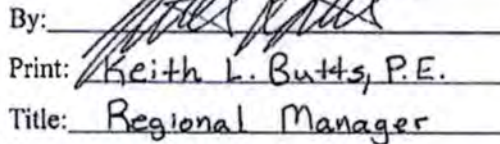 By:
Print: Keith L. Butts, P.E.
Title: Regional Manager